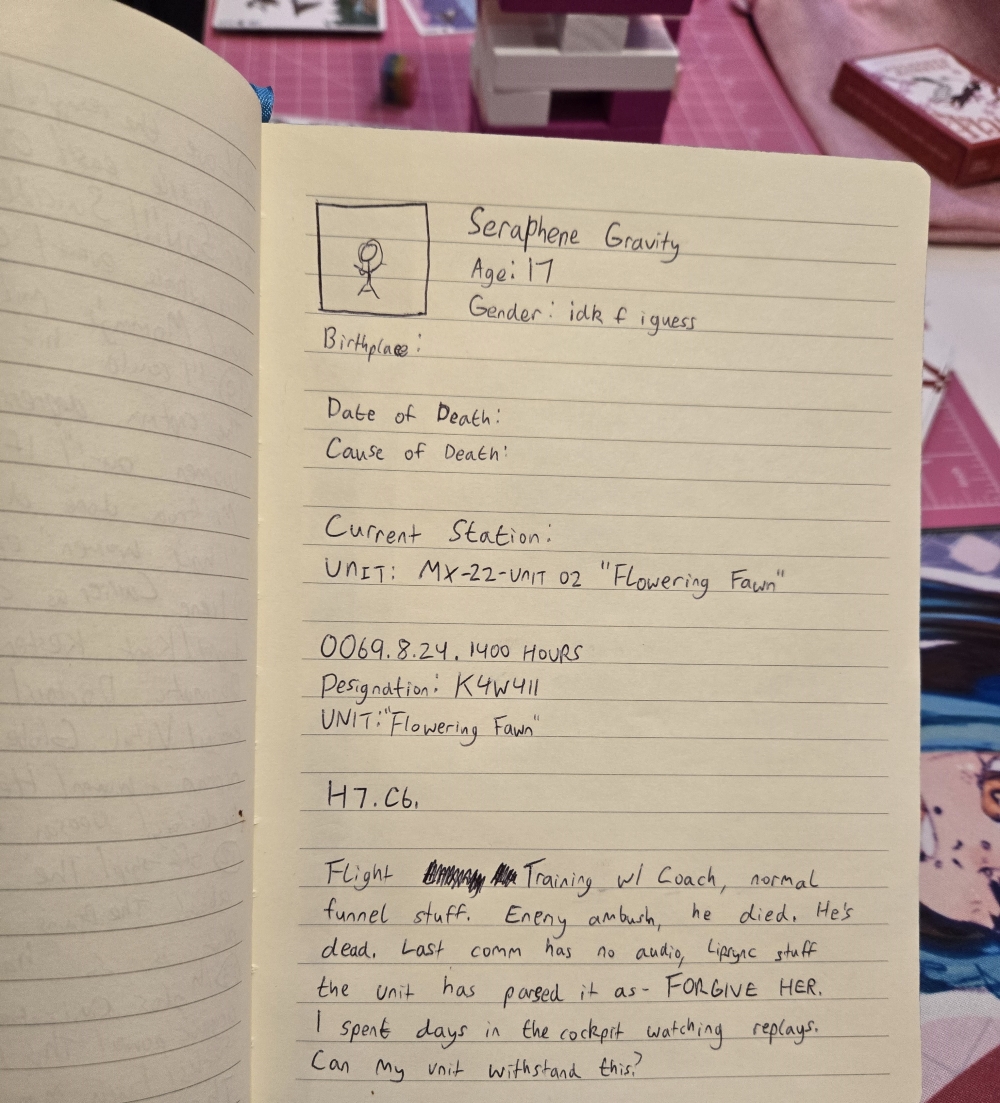 Seraphene Gravity
Age: 17
Gender: idk f iguess
Birthplace:
Date of Death:
Cause of Death:
Current Station:
UNIT: MX-22-UNIT 02 "Flowering Fawn"
0069.8.24. 1400 HOURS
Designation: K4W411
UNIT: "Flowering Fawn"
H7.C6.
Flight Training w/ Coach, normal
funnel stuff. Enemy ambush, he died. He's
dead. Last comm has no audio, Lipsync stuff
the unit has parsed it as- FORGIVE HER.
I spent days in the cockpit watching replays.
Can my unit withstand this?